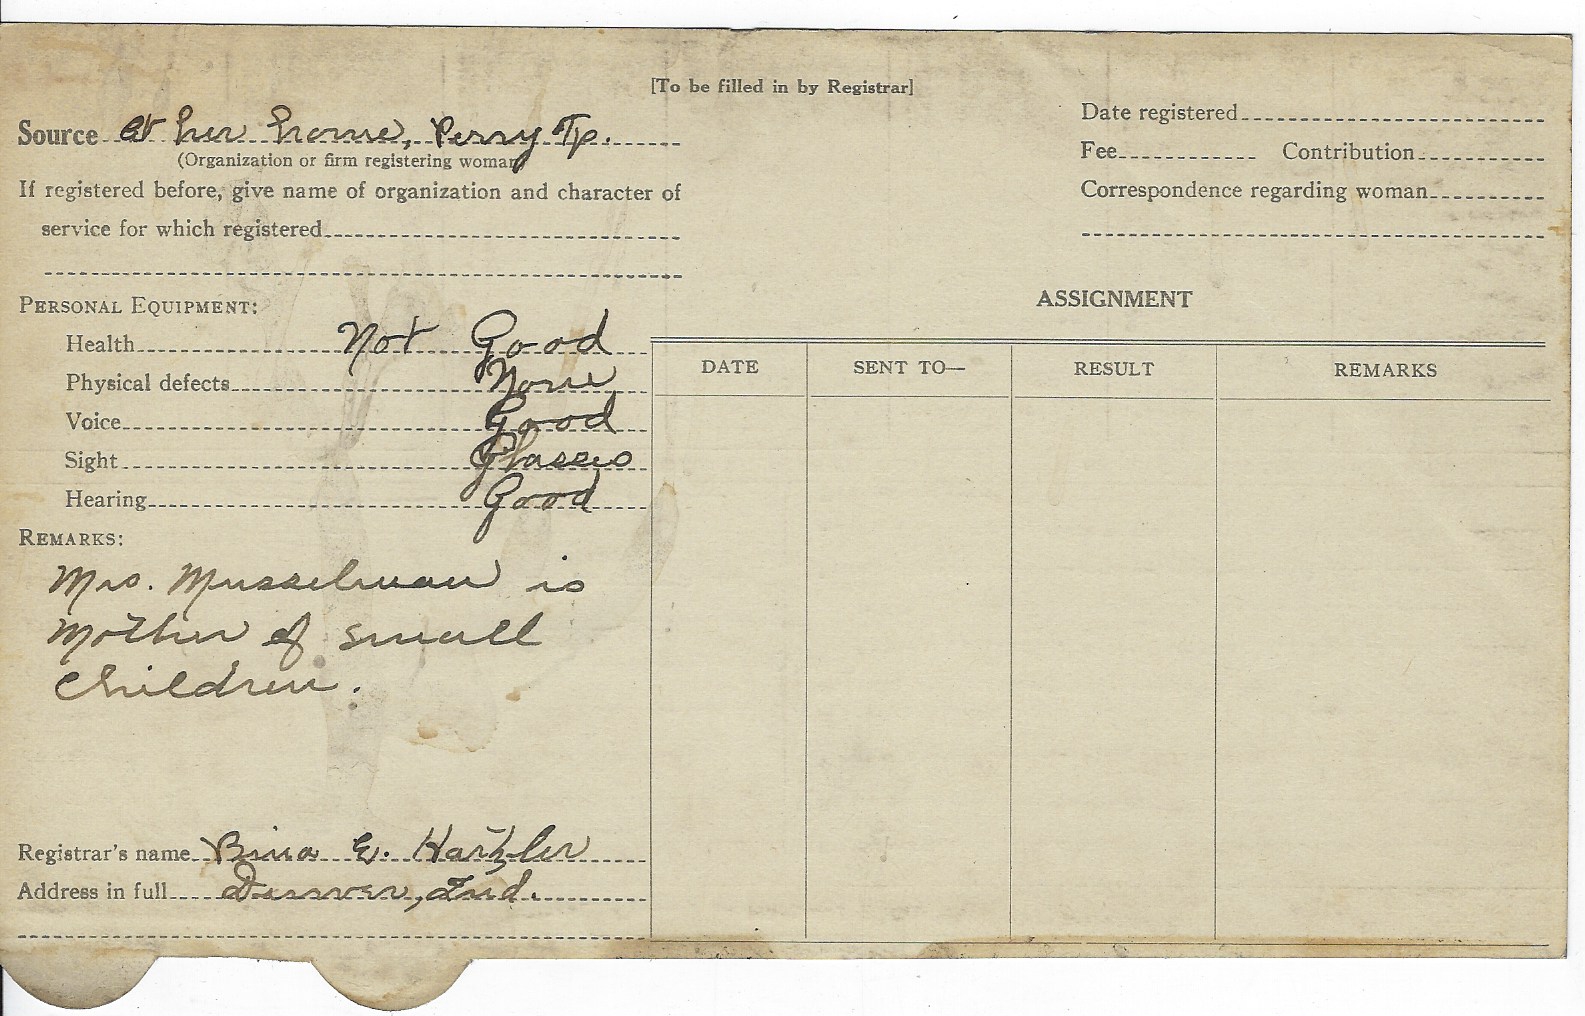 [To be filled in by Registrar]
Source At her home, Perry Tp.
(Organization or firm registering woman)
If registered before, give name of organization and character of
service for which registered
PERSONAL EQUIPMENT:
Health Not Good
Physical defects None
Voice Good
Sight Glasses
Hearing Good
REMARKS:
Mrs. Musselman is
Mother of small
Children.
Registrar's name Bina E. Hartzler
Address in full Denver, Ind.
Date registered
Fee Contribution
Correspondence regarding woman
ASSIGNMENT
DATE SENT TO— RESULT REMARKS